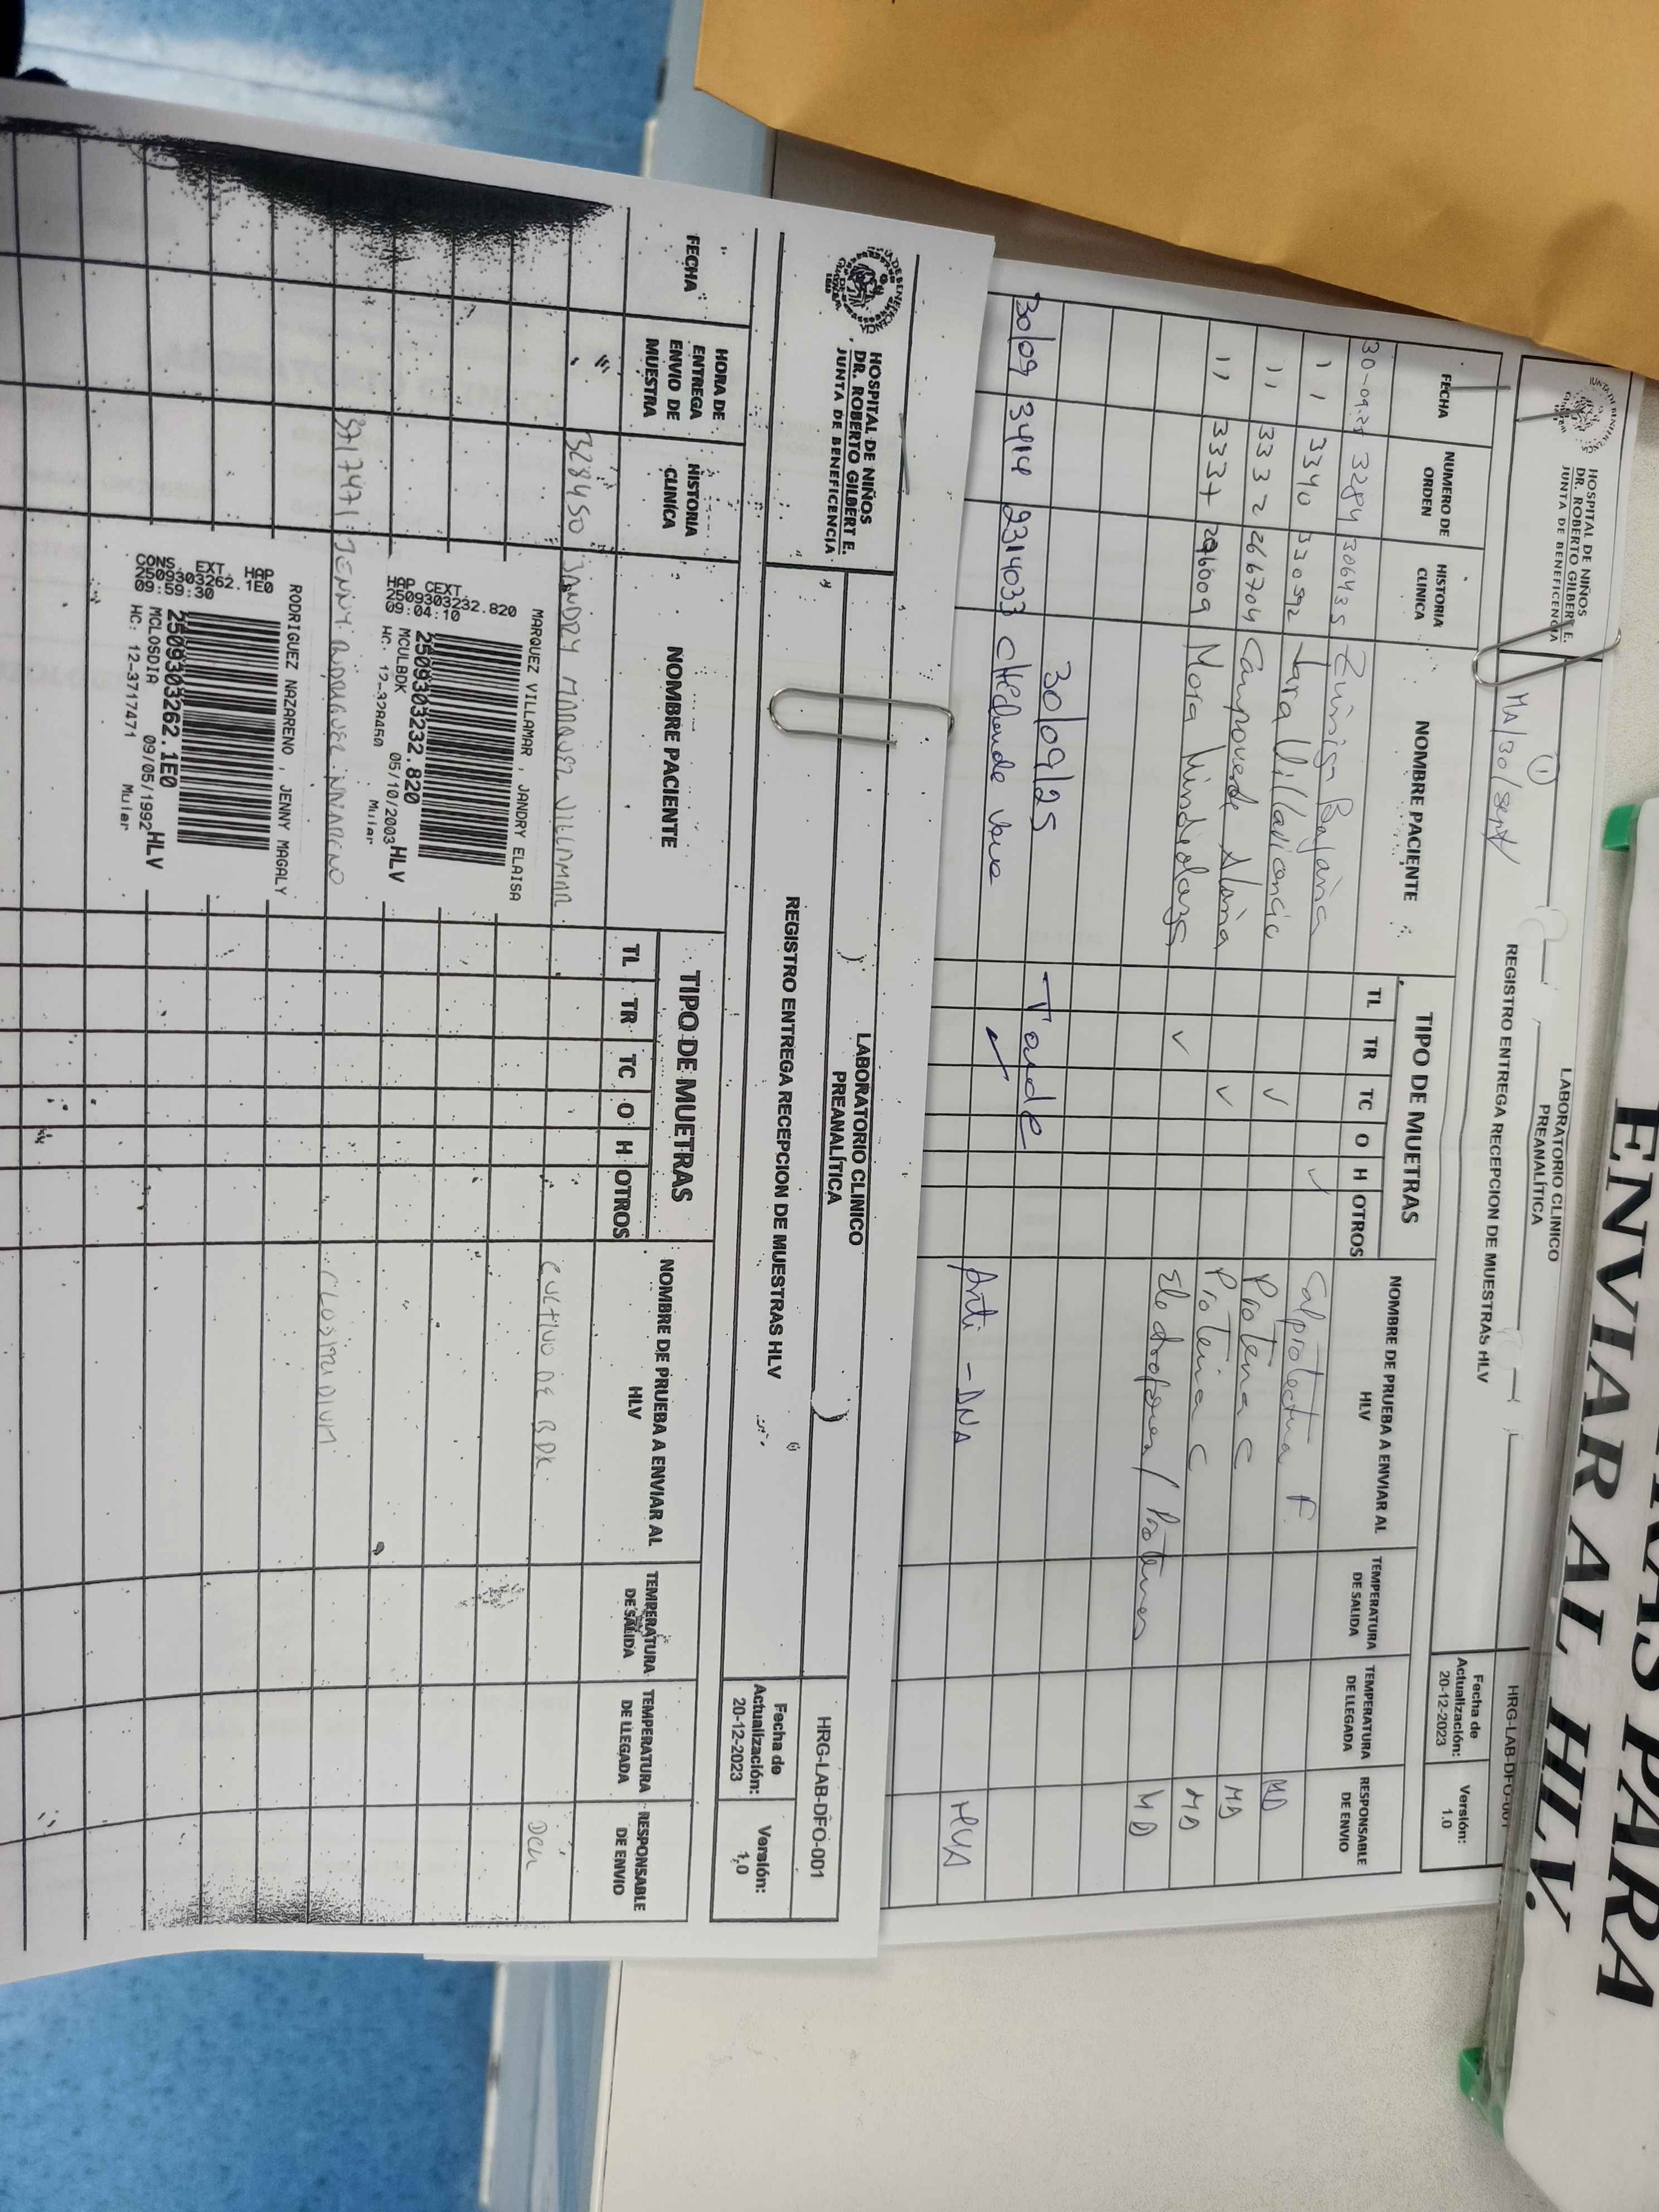 ENVIAR AL HLV.
RAS PARA
HOSPITAL DE NIÑOS
DR. ROBERTO GILBERT E.
JUNTA DE BENEFICENCIA
LABORATORIO CLINICO
PREANALÍTICA
HRG-LAB-DFO-001
1
MA/30/sept/
REGISTRO ENTREGA RECEPCION DE MUESTRAS HLV
Fecha de Actualización: 20-12-2023
Versión: 1.0
FECHA NUMERO DE ORDEN HISTORIA CLINICA NOMBRE PACIENTE TIPO DE MUETRAS NOMBRE DE PRUEBA A ENVIAR AL HLV TEMPERATURA DE SALIDA TEMPERATURA DE LLEGADA RESPONSABLE DE ENVIO
TL TR TC O H OTROS
30-09-25 3284 306435 Zúñiga Bajaña ✓ Calprotectina F. MD
11 3340 330592 Jara Villavicencio ✓ Proteina C MD
11 3332 266704 Campoverde Alaña ✓ Proteina C MD
11 3337 296009 Mora ✓ MD
30/09/25 Tarde
30/09 3414 2314033 ✓ Anti-DNA
HOSPITAL DE NIÑOS
DR. ROBERTO GILBERT E.
JUNTA DE BENEFICENCIA
LABORATORIO CLINICO
PREANALÍTICA
HRG-LAB-DFO-001
REGISTRO ENTREGA RECEPCION DE MUESTRAS HLV
Fecha de Actualización: 20-12-2023
Versión: 1.0
FECHA HORA DE ENTREGA ENVIO DE MUESTRA HISTORIA CLINICA NOMBRE PACIENTE TIPO DE MUETRAS NOMBRE DE PRUEBA A ENVIAR AL HLV TEMPERATURA DE SALIDA TEMPERATURA DE LLEGADA RESPONSABLE DE ENVIO
TL TR TC O H OTROS
328450 JANDRY MARQUEZ VILLAMAR CULTIVO DE BDK.
MARQUEZ VILLAMAR , JANDRY ELAISA
HOP CEXT.
2509303232.820
09:04:10
2509303232.820
MCULBDK 05/10/2003 HLV
HC: 12-328450 Mujer
3717471 JENNY RODRIGUEZ NAZARENO CLOSTRIDIUM.
RODRIGUEZ NAZARENO , JENNY MAGALY
CONS. EXT. HOP
2509303262.1E0
09:59:30
2509303262.1E0
MCLOSDIA 09/05/1992 HLV
HC: 12-3717471 Mujer